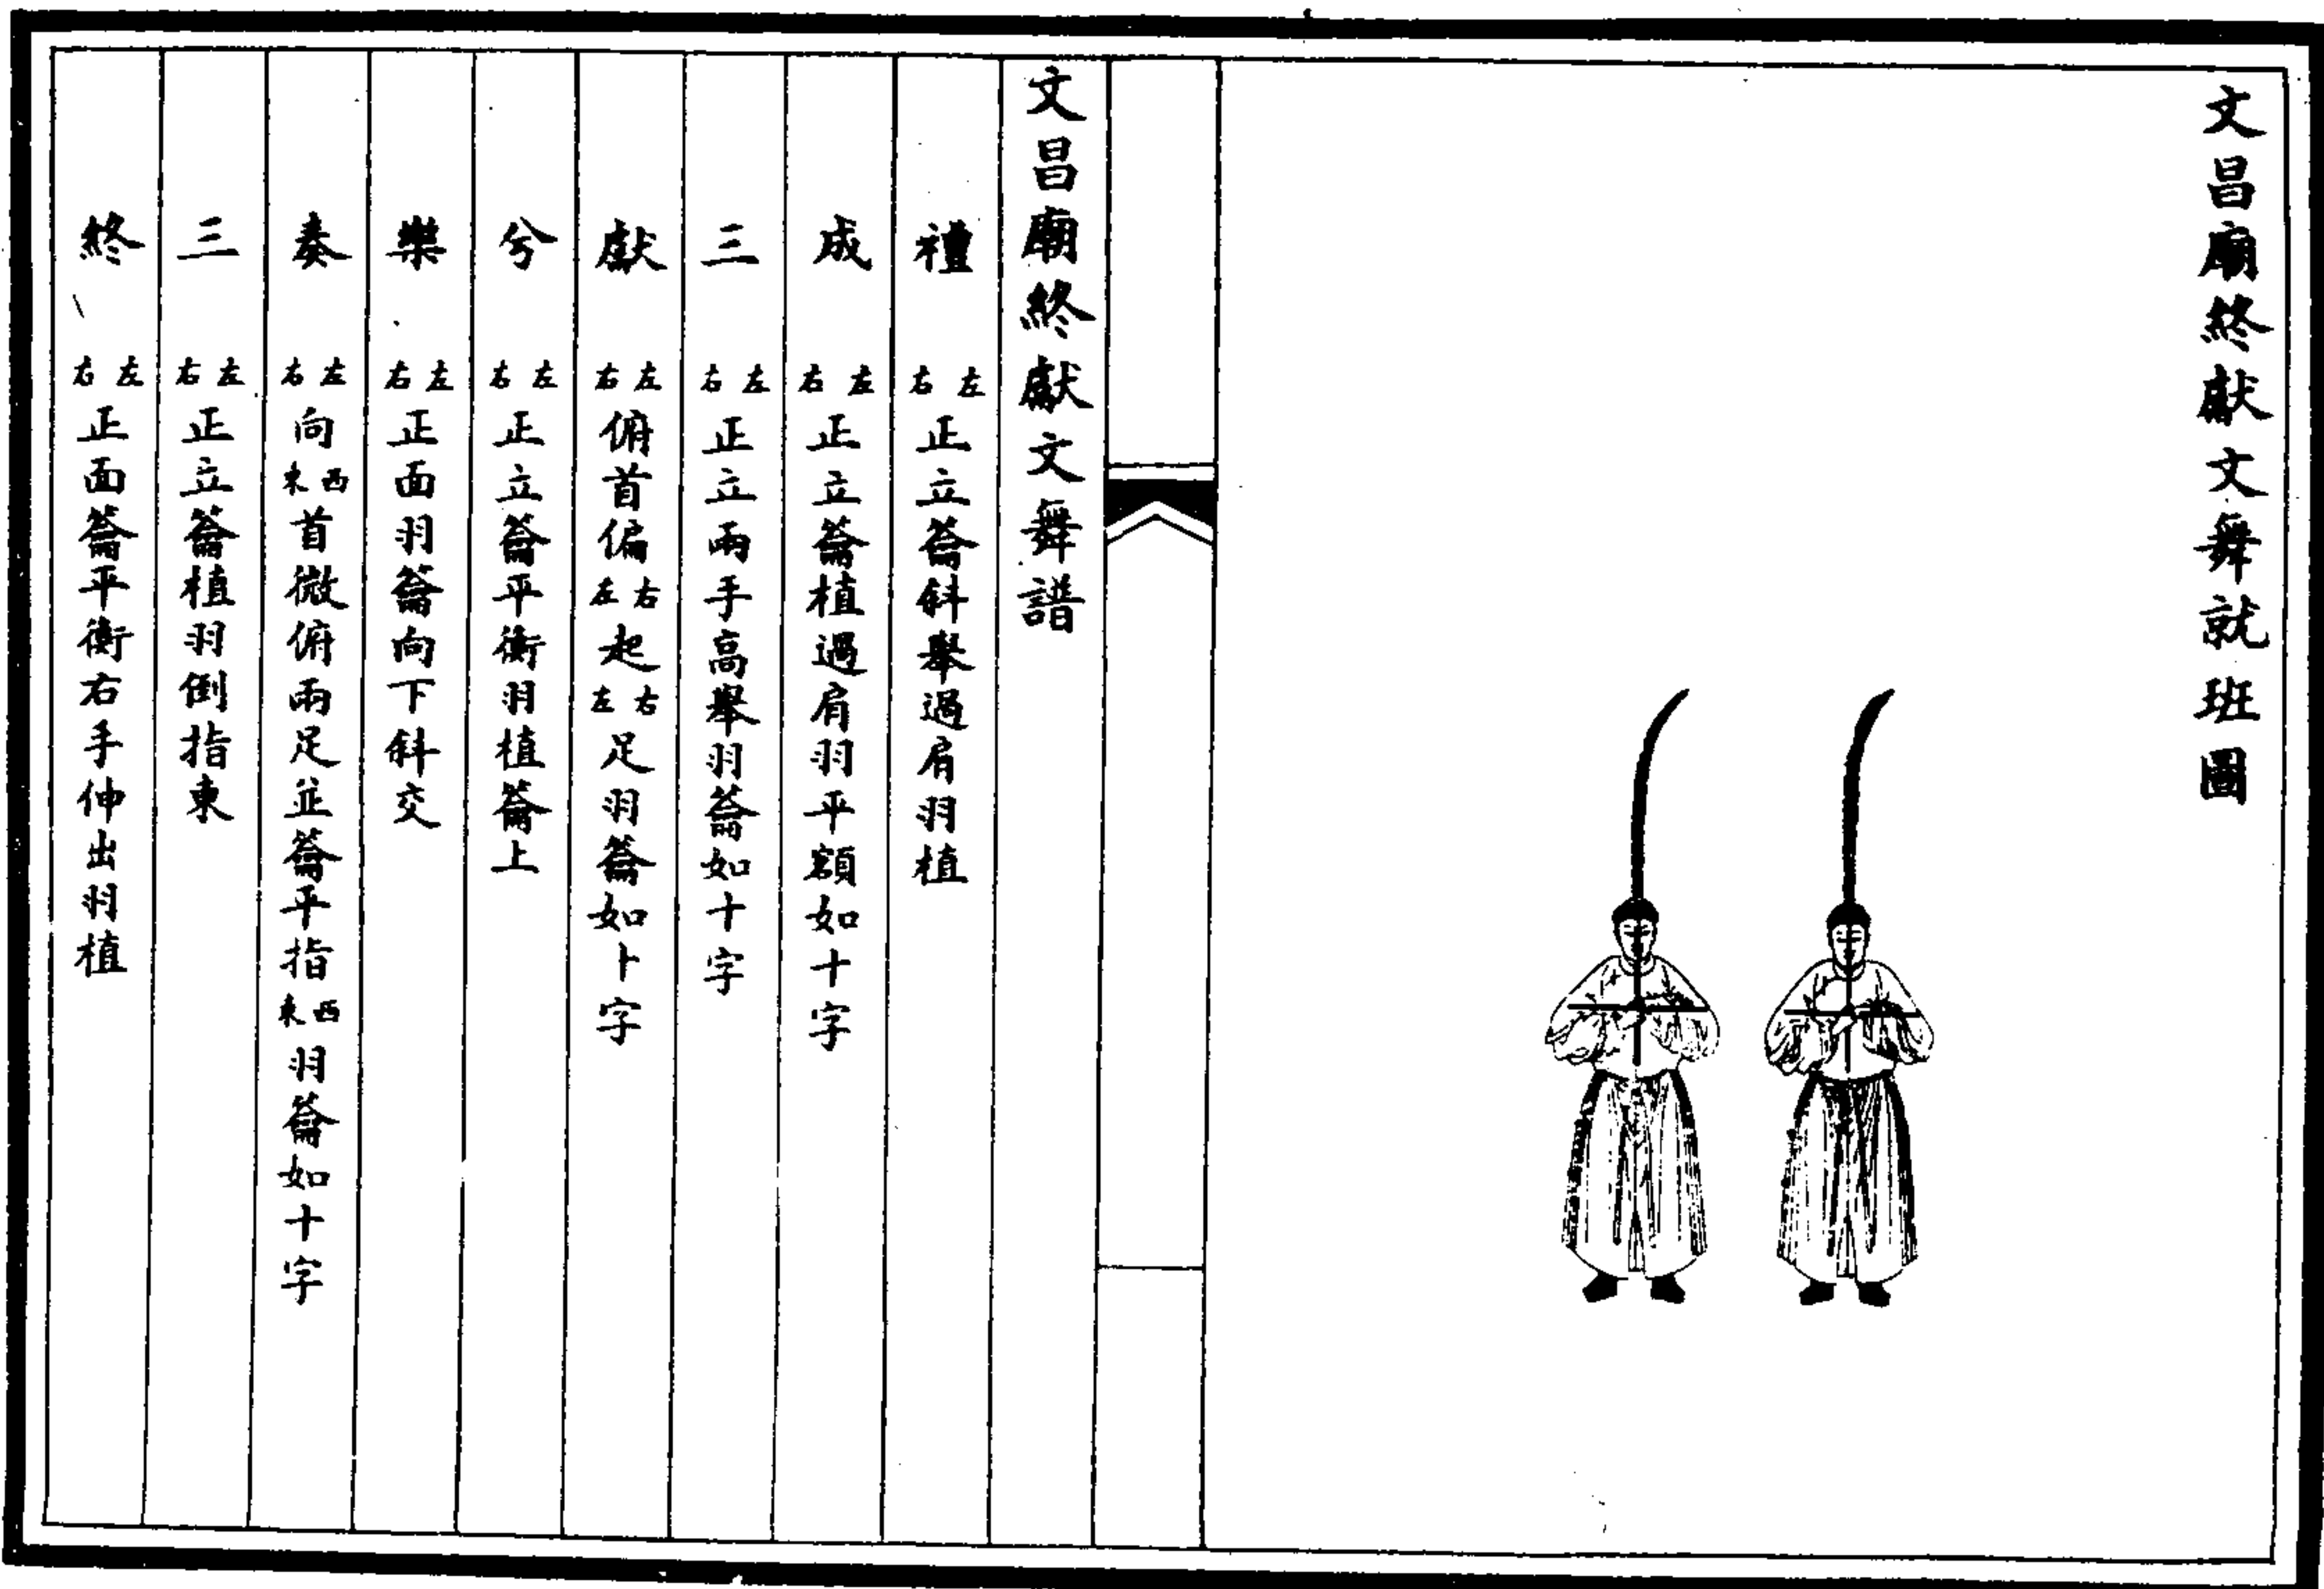 文昌廟終獻文舞就班圖
文昌廟終獻文舞譜
禮 左右正立籥斜舉過肩羽植
成 左右正立籥植過肩羽平額如十字
三 左右正立兩手高舉羽籥如十字
獻 左右俯首偏右左起右左足羽籥如卜字
兮 左右正立籥平衡羽植籥上
樂 左右正面羽籥向下斜交
奏 左右向西東首微俯兩足並籥平指西東羽籥如十字
三 左右正立籥植羽倒指東
終 左右正面籥平衡右手伸出羽植